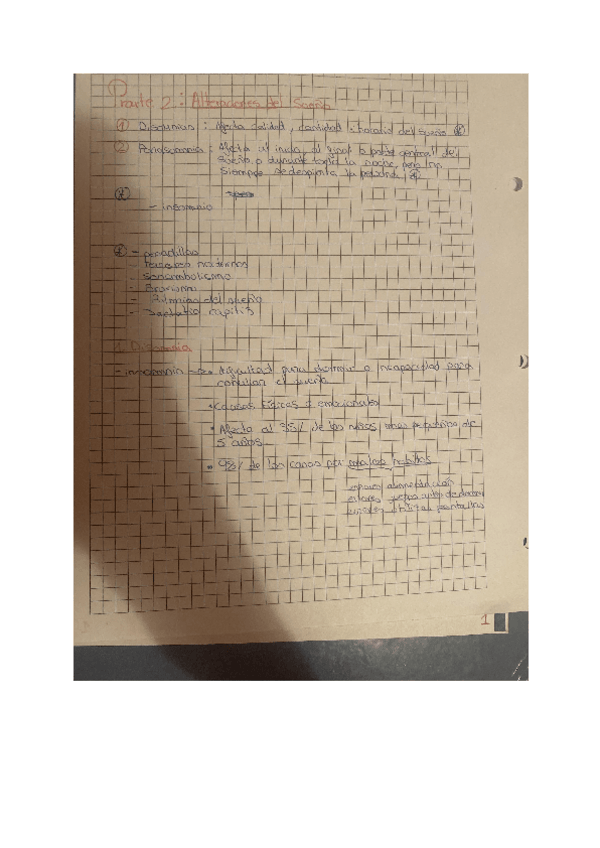 Parte 2: Alteraciones del sueño
① Disomnias: Afecta calidad, cantidad, horario del sueño
② Parasomnias: Afecta al inicio, al final
sueño o durante toda la noche, pero no
siempre se despierta la persona
- insomnio
- pesadillas
- terrores nocturnos
- sonambulismo
- Bruxismo
- Ritmias del sueño
- Jactatio capitis
1. Disomnia
- insomnio → dificultad para dormir o incapacidad para
conciliar el sueño
• causas físicas y emocionales
• Afecta al 35% de los niños
5 años
• de los casos por malos hábitos
pantallas
1